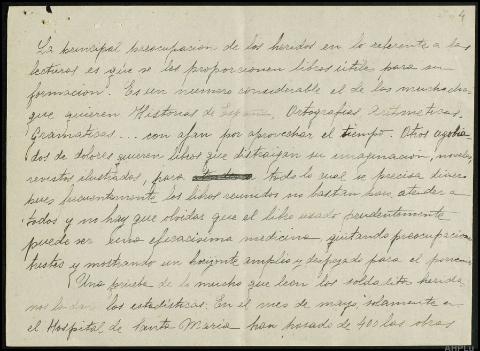 4
La principal preocupación de los heridos en lo referente a las
lecturas es que se les proporcionen libros útiles para su
formación. Es un número considerable el de los muchachos
que quieren Historias de España, Ortografías, Aritméticas,
Gramáticas... con afán por aprovechar el tiempo. Otros agobia
dos de dolores quieren libros que distraigan su imaginación, novelas,
revistas ilustradas, para todo lo cual se precisa dinero
pues frecuentemente los libros reunidos no bastan para atender a
todos y no hay que olvidar que el libro usado prudentemente
puede ser una eficacísima medicina, quitando preocupaciones
tristes y mostrando un horizonte amplio y despejado para el porvenir
Una prueba de lo mucho que leen los soldaditos heridos
nos la dan las estadísticas. En el mes de mayo solamente en
el Hospital de Santa María han pasado de 400 las obras
AHPLU